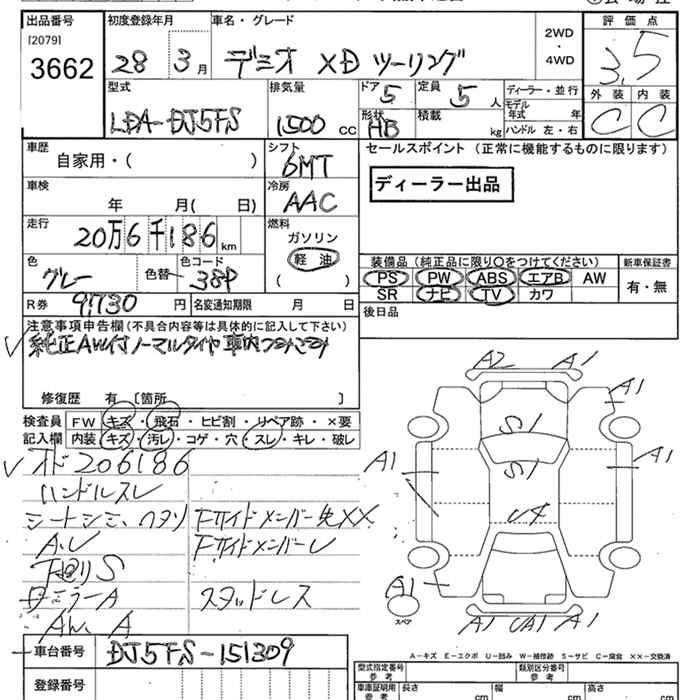 出品番号
[2079]
3662
初度登録年月
28 3月
車名・グレード
デミオ XD ツーリング
2WD
・
4WD
評価点
3.5
外装 内装
C C
型式
LDA-DJ5FS
排気量
1500 cc
ドア 5
定員 5 人
形状 HB
積載 kg
ディーラー・並行
モデル年式 年
ハンドル 左・右
車歴
自家用・( )
シフト
6MT
セールスポイント(正常に機能するものに限ります)
ディーラー出品
車検
年 月( 日)
冷房
AAC
走行
20万6千186km
燃料
ガソリン
軽油
( )
色
グレー
色替
色コード
38P
装備品(純正品に限り○をつけてください)
PS PW ABS エアB AW
SR ナビ TV カワ
新車保証書
有・無
R券 9,730円
名変通知期限 月 日
後日品
注意事項申告欄(不具合内容等は具体的に記入して下さい)
純正AW付ノーマルタイヤ車内つみこみ
修復歴 有〔箇所 〕
検査員記入欄
FW キズ・飛石・ヒビ割・リペア跡・×要
内装 キズ・汚レ・コゲ・穴・スレ・キレ・破レ
オド206186
ハンドルスレ
シートシミ、ヘタリ
Fサイドメンバー先XX
A.U
Fサイドメンバー
S
ミラーA
スタッドレス
A
A2 A1
A1
S1
S1
A1
A1
U4
A1
スペア
A1 UA1 A1
A-キズ E-エクボ U-凹み W-補修跡 S-サビ C-腐食 XX-交換済
車台番号
DJ5FS-151309
登録番号
型式指定番号 参考
類別区分番号 参考
車庫証明用 参考
長さ cm
幅 cm
高さ cm